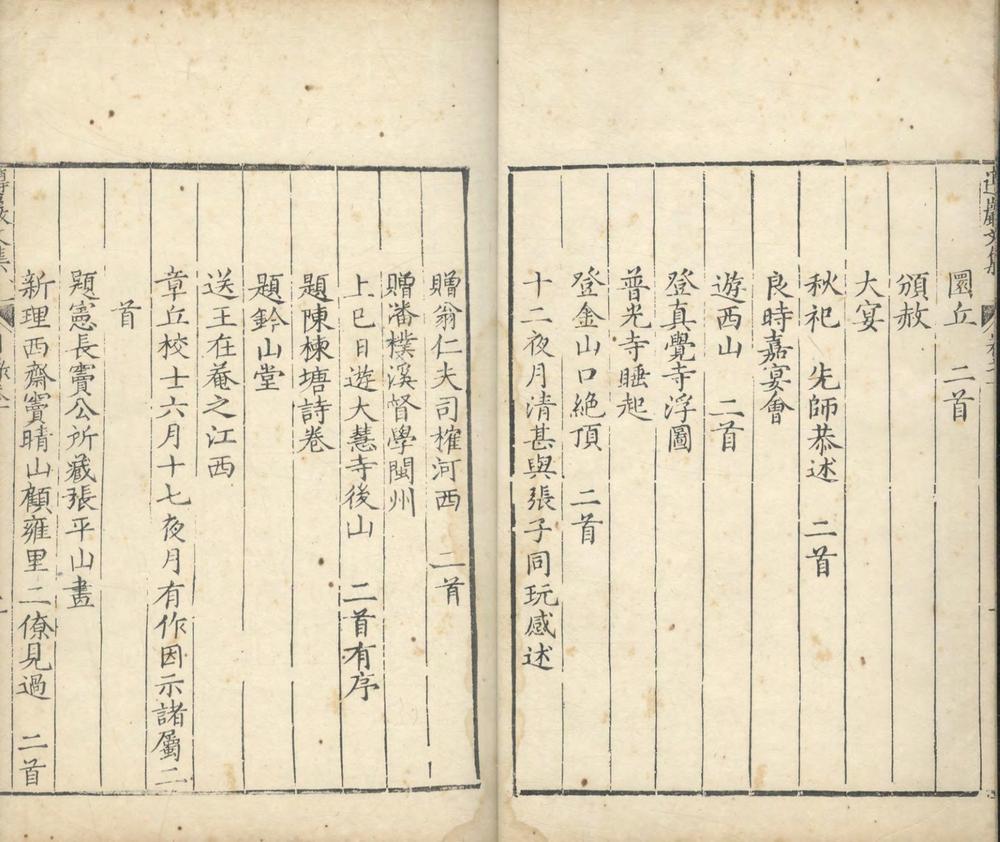 圜丘　二首
頒赦
大宴
秋祀　先師恭述　二首
良時嘉宴會
遊西山　二首
登真覺寺浮圖
普光寺睡起
登金山口絶頂　二首
十二夜月清甚與張子同玩感述
贈翁仁夫司榷河西　二首
贈潘樸溪督學閩州
上巳日遊大慧寺後山　二首有序
題陳棟塘詩卷
題鈐山堂
送王在菴之江西
章丘校士六月十七夜月有作因示諸屬二
首
題憲長竇公所藏張平山畫
新理西齋竇晴山顧雍里二僚見過　二首